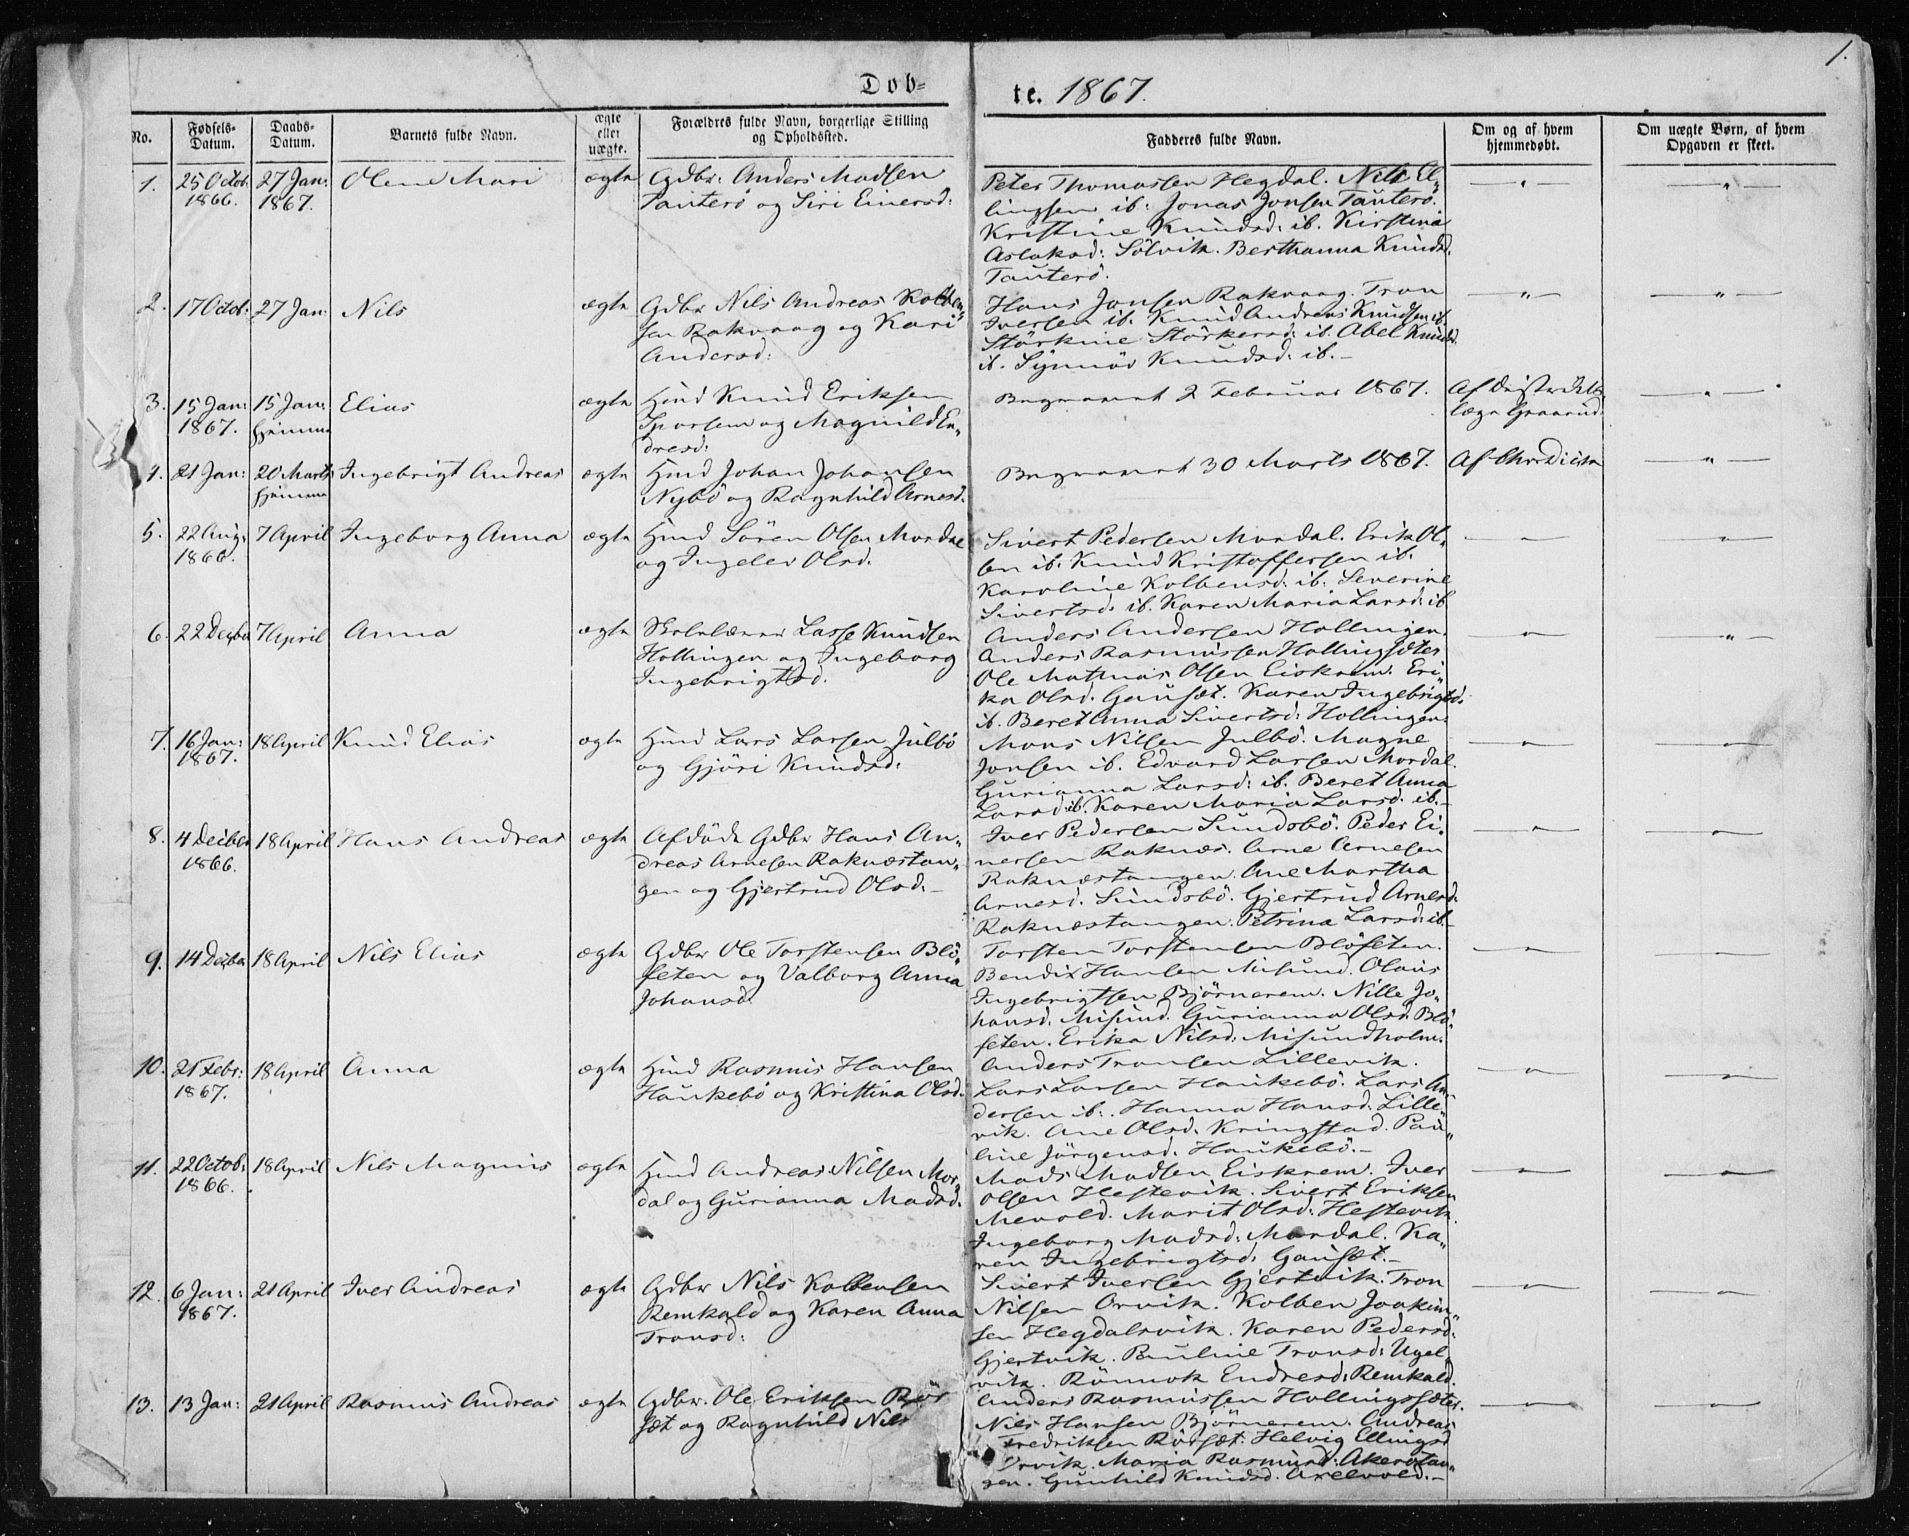 1.
Døb=
te. 1867.
No.
Fødsels-
Datum.
Daabs-
Datum.
Barnets fulde Navn.
ægte
eller
uægte.
Forældres fulde Navn, borgerlige Stilling
og Opholdssted.
Fadderes fulde Navn.
Om og af hvem
hjemmedøbt.
Om uægte Børn, af hvem
Opgaven er skeet.
1.
25 Octob:
1866.
27 Jan:
1867.
Olene Mari
ægte
Gdbr: Anders Madsen
Tauterö og Siri Einersd:
Peter Thomassen Hegdal. Nils El„
lingsen ib: Jonas Jonsen Tauterö.
Kristine Knudsd: ib. Kirstina
Aslaksd: Sölvik. Berthanna Knudsd.
Tauterö.
2.
17 Octob:
27 Jan:
Nils
ægte
Gdbr Nils Andreas Kolben„
sen Rakvaag og Kari
Andersd:
Hans Jonsen Rakvaag. Tron
Iversen ib. Knud Andreas Knudsen ib.
Störkine Störkersd: ib. Abel Knudsd.
ib. Synnöv Knudsd: ib. –
3.
15 Jan:
1867.
15 Jan:
hjemme
Elias
ægte
Hmd Knud Eriksen
og Magnild En„
dresd:
Begravet 2 Februar 1867.
Af Distrikts
læge Graarud.
4.
21 Jan:
20 Marts
hjemme
Ingebrigt Andreas
ægte
Hmd Johan Johansen
Nybö og Ragnhild Arnesd.
Begravet 30 Marts 1867.
5.
22 Aug:
1866.
7 April
Ingeborg Anna
ægte
Hmd Sören Olsen Mordal
og Ingelev Olsd.
Sivert Pedersen Mordal. Erik Ol„
sen ib. Knud Kristoffersen ib.
Karoline Kolbensd: ib. Severine
Sivertsd: ib. Karen Maria Larsd: ib
6.
22 Decbr
7 April
Anna
ægte
Skolelærer Lasse Knudsen
Hollingen og Ingeborg
Ingebrigtsd.
Anders Andersen Hollingen.
Anders Rasmussen Hollingsæter
Ole Mathias Olsen Eiskrem. Eri„
ka Olsd. Gausæt. Karen Ingebrigtsd:
ib. Beret Anna Sivertsd: Hollingen.
7.
16 Jan:
1867.
18 April
Knud Elias
ægte
Hmd Lars Larsen Julbö
og Gjöri Knudsd:
Mons Nilsen Julbö. Magne
Jonsen ib. Edvard Larsen Mordal.
Gurianna Larsd: ib. Beret Anna
Larsd: ib. Karen Maria Larsd. ib. –
8.
4 Decber
1866.
18 April
Hans Andreas
ægte
Afdöde Gdbr Hans An„
dreas Arnesen Raknæstan„
gen og Gjertrud Olsd: –
Iver Pedersen Sundsbö. Peder Ei„
nersen Raknæs. Arne Arnesen
Raknæstangen. Ane Martha
Arnesd. Sundsbö. Gjertrud Arnesd.
Raknæstangen. Petrina Larsd: ib –
9.
14 Decber
18 April
Nils Elias
ægte
Gdbr Ole Torstensen Blö„
seten og Valborg Anna
Johansd.
Torsten Torstensen Blöseten.
Bendix Hansen Misund. Olaus
Ingebrigtsen Björnerem. Nille Jo„
hansd. Misund. Gurianna Olsd. Blö„
seten. Erika Nilsd: Misundholm.
10.
21 Febr:
1867.
18 April
Anna
ægte
Hmd Rasmus Hansen
Haukebö og Kristina Olsd.
Anders Tronsen Lillevik.
Lars Larsen Haukebö. Lars An„
dersen ib. Hanna Hansd. Lille„
vik. Ane Olsd. Kringstad. Pau„
line Jörgensd. Haukebö. –
11.
22 Octob:
1866.
18 April
Nils Magnus
ægte
Hmd Andreas Nilsen Mor„
dal og Gurianna Madsd.
Mads Madsen Eiskrem. Iver
Olsen Hestevik. Sivert Eriksen
Mevold. Marit Olsd: Hestevik.
Ingeborg Madsd: Mordal. Ka„
ren Ingebrigtsd: Gausæt. –
12.
6 Jan:
1867.
21 April
Iver Andreas
ægte
Gdbr Nils Kolbensen
Remkald og Karen Anna
Tronsd:
Sivert Iversen Gjertvik. Tron
Nilsen Orvik. Kolben Joakim„
sen Hegdalsvik. Karen Pedersd:
Gjertvik. Pauline Tronsd: Ugel„
vik. Rönnok Endresd: Remkald.
13.
13 Jan:
21 April
Rasmus Andreas
ægte
Gdbr. Ole Eriksen Rör
sæt og Ragnhild Nils
Anders Rasmussen Hollingsæter.
Nils Hansen Björnerem. Andreas
Fredriksen Rörsæt. Helvig Ellingsd
Orvik. Maria Rasmusd: Akerötan„
gen. Gunhild Knudsd. Arelvold. –